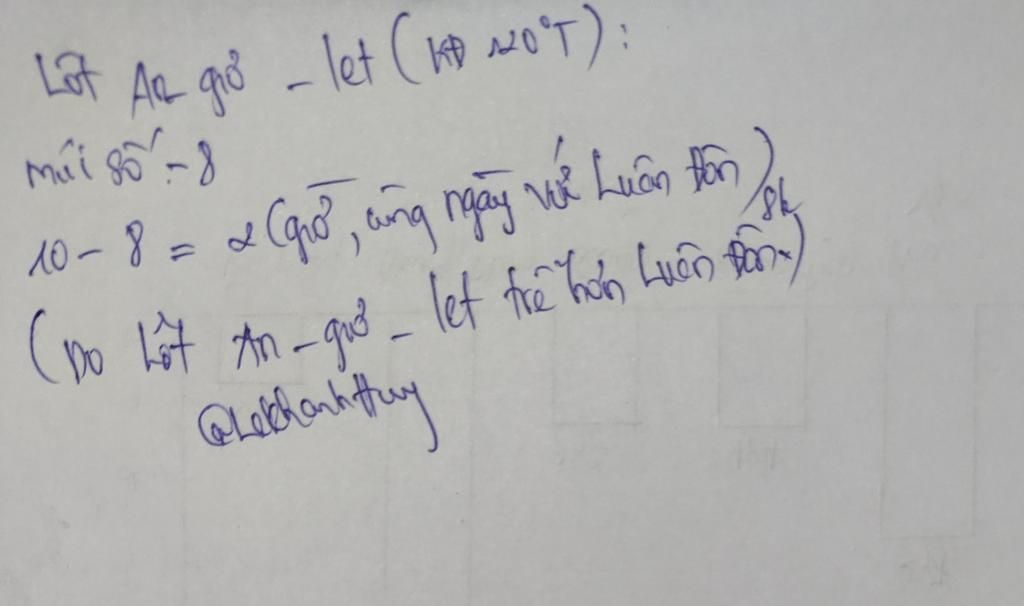 Lốt An giơ - let (KĐ 120°T):
múi số: - 8
10 - 8 = 2 (giờ, cùng ngày với Luân Đôn)
(Do Lốt An - giơ - let trễ hơn Luân Đôn 8h)
@LekhanhHuy